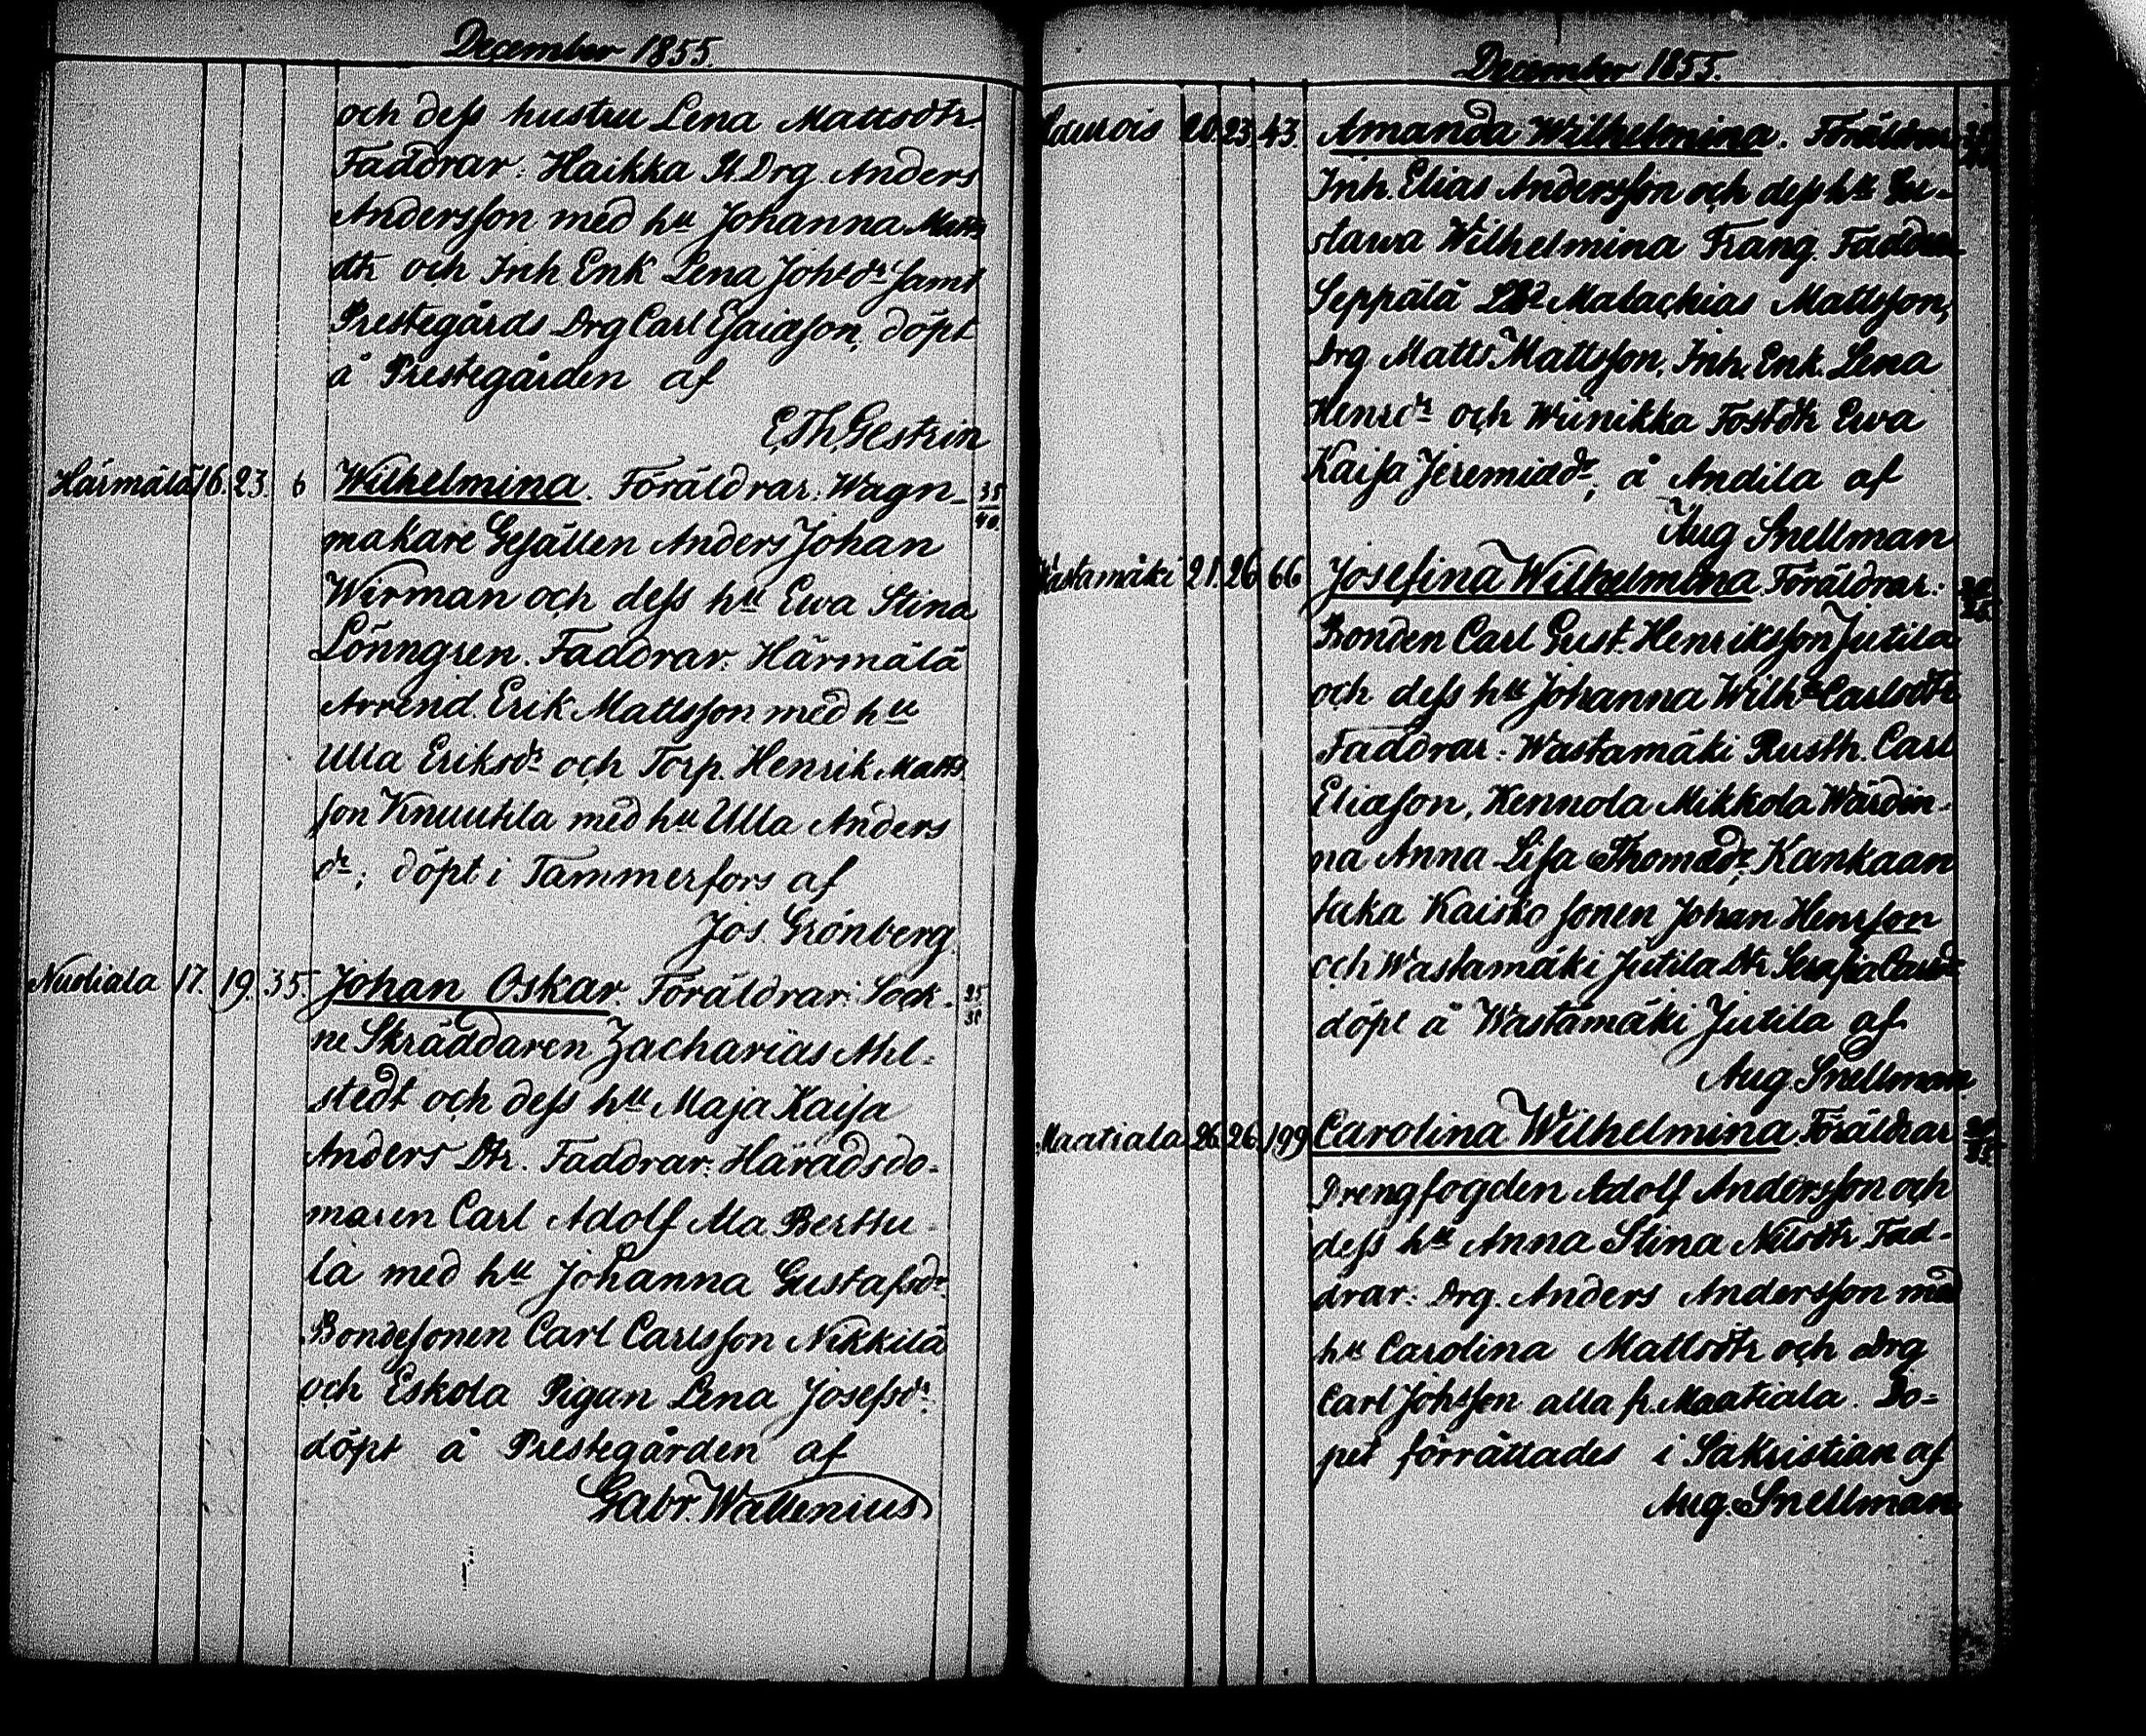 December 1855.
och dess hustru Lena Mattsdtr.
Faddrar: Haikka St. Drg. Anders
Andersson med hu Johanna Matts
dtr och Inh. Enk Lena Johsdr samt
Prestegårds Drg Carl Esaiason, döpt
å Prestegården af
C. Th. Gestrin
Härmälä 16. 23. 6 Wilhelmina. Föräldrar: Wagn- 35/40
makare Gesällen Anders Johan
Wirman och dess hu Ewa Stina
Lönngren. Faddrar: Härmälä
Arrend. Erik Mattsson med hu
Ulla Eriksdr och Torp. Henrik Matts
son Knuutila med hu Ulla Anders
dr; döpt i Tammerfors af
Jos. Grönberg.
Nuoliala 17. 19. 35. Johan Oskar. Föräldrar: Sock-
ne Skräddaren Zacharias Ahl-
stedt och dess hu Maja Kajsa
Anders Dtr. Faddrar: Häradsdo-
maren Carl Adolf Ala Berttu-
la med hu Johanna Gustafsdr
Bondesonen Carl Carlsson Nikkilä
och Eskola Pigan Lena Josefsdr
döpt å Prestegården af
Gabr. Wallenius
December 1855.
20. 23. 43. Amanda Wilhelmina. Föräldrar
Inh. Elias Andersson och dess hu Gu-
stawa Wilhelmina Frang. Faddrar
Seppälä Malachias Mattsson,
Drg Matts Mattsson, Inh. Enk. Lena
Henrdr och Winikka Fostdtr Ewa
Kajsa Jeremiædr; å Andila af
Aug Snellman
Wastamäki 21. 26 66 Josefina Wilhelmina. Föräldrar:
Bonden Carl Gust. Henriksson Jutila
och dess hu Johanna Wilh. Carlsdtr
Faddrar: Wastamäki Rusth. Carl
Eliason, Kennola Mikkola Wärdin-
na Anna Lisa Thomædr, Kankaan
taka Kaisko sonen Johan Henrson
och Wastamäki Jutila Dtr Serafia Carlsdr
döpt å Wastamäki Jutila af
Aug. Snellman
Maatiala 26. 26. 199 Carolina Wilhelmina. Föräldrar
Drengfogden Adolf Andersson och
dess hu Anna Stina Nilsdtr. Fad-
drar: Drg. Anders Andersson med
hu Carolina Mattsdtr och Drg
Carl Johsson alla fr. Maatiala. Do-
pet förrättades i Sakristian af
Aug. Snellman